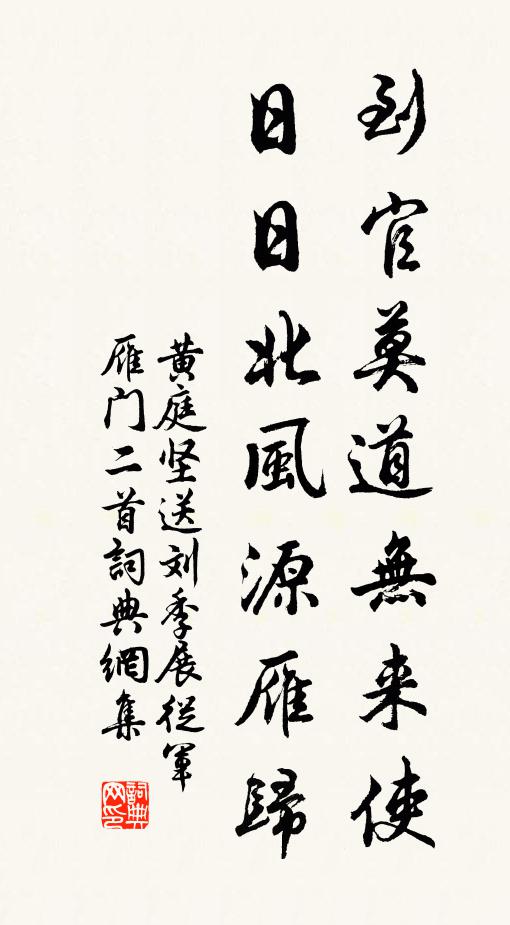 到官莫道無来使
日日北風源雁歸
黄庭坚送刘季展從軍
雁门二首詞典網集
詞典网印